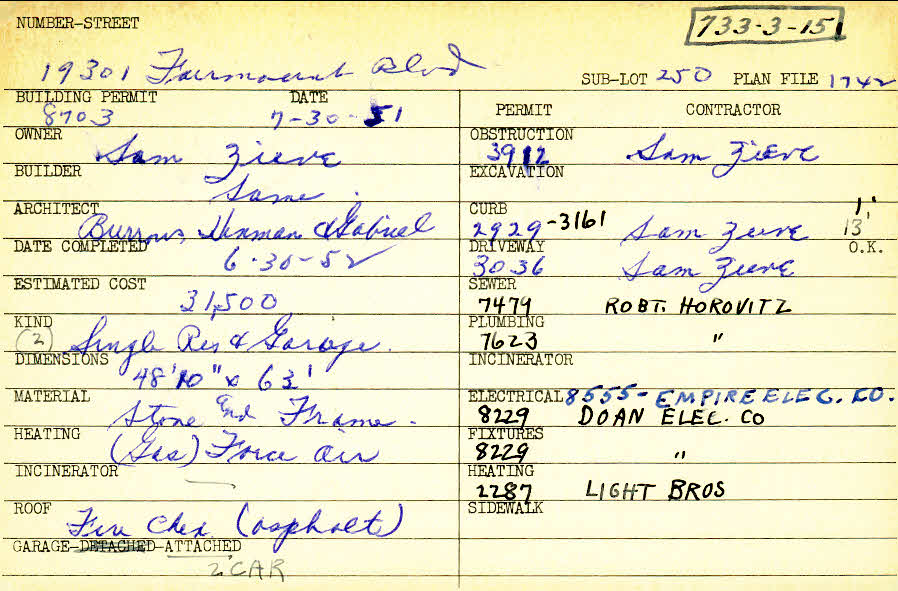 NUMBER-STREET
733-3-15
19301 Fairmount Blvd
SUB-LOT 250 PLAN FILE 1742
BUILDING PERMIT DATE
8703 7-30-51
OWNER
Sam Zieve
BUILDER
Same.
ARCHITECT
Burrows, Hinman & Gabriel
DATE COMPLETED
6-30-52
ESTIMATED COST
31,500
KIND
(2) Single Res & Garage.
DIMENSIONS
48'10" x 63'
MATERIAL
Stone and Frame.
HEATING
(Gas) Force air
INCINERATOR
ROOF
Fire Chex (asphalt)
GARAGE-DETACHED-ATTACHED
2 CAR
PERMIT CONTRACTOR
OBSTRUCTION
3912 Sam Zieve
EXCAVATION
CURB 1'
2929-3161 Sam Zieve 13'
DRIVEWAY O.K.
3036 Sam Zieve
SEWER
7479 ROBT. HOROVITZ
PLUMBING
7623 "
INCINERATOR
ELECTRICAL 8555- EMPIRE ELEC. CO.
8229 DOAN ELEC. CO
FIXTURES
8229 "
HEATING
2287 LIGHT BROS
SIDEWALK